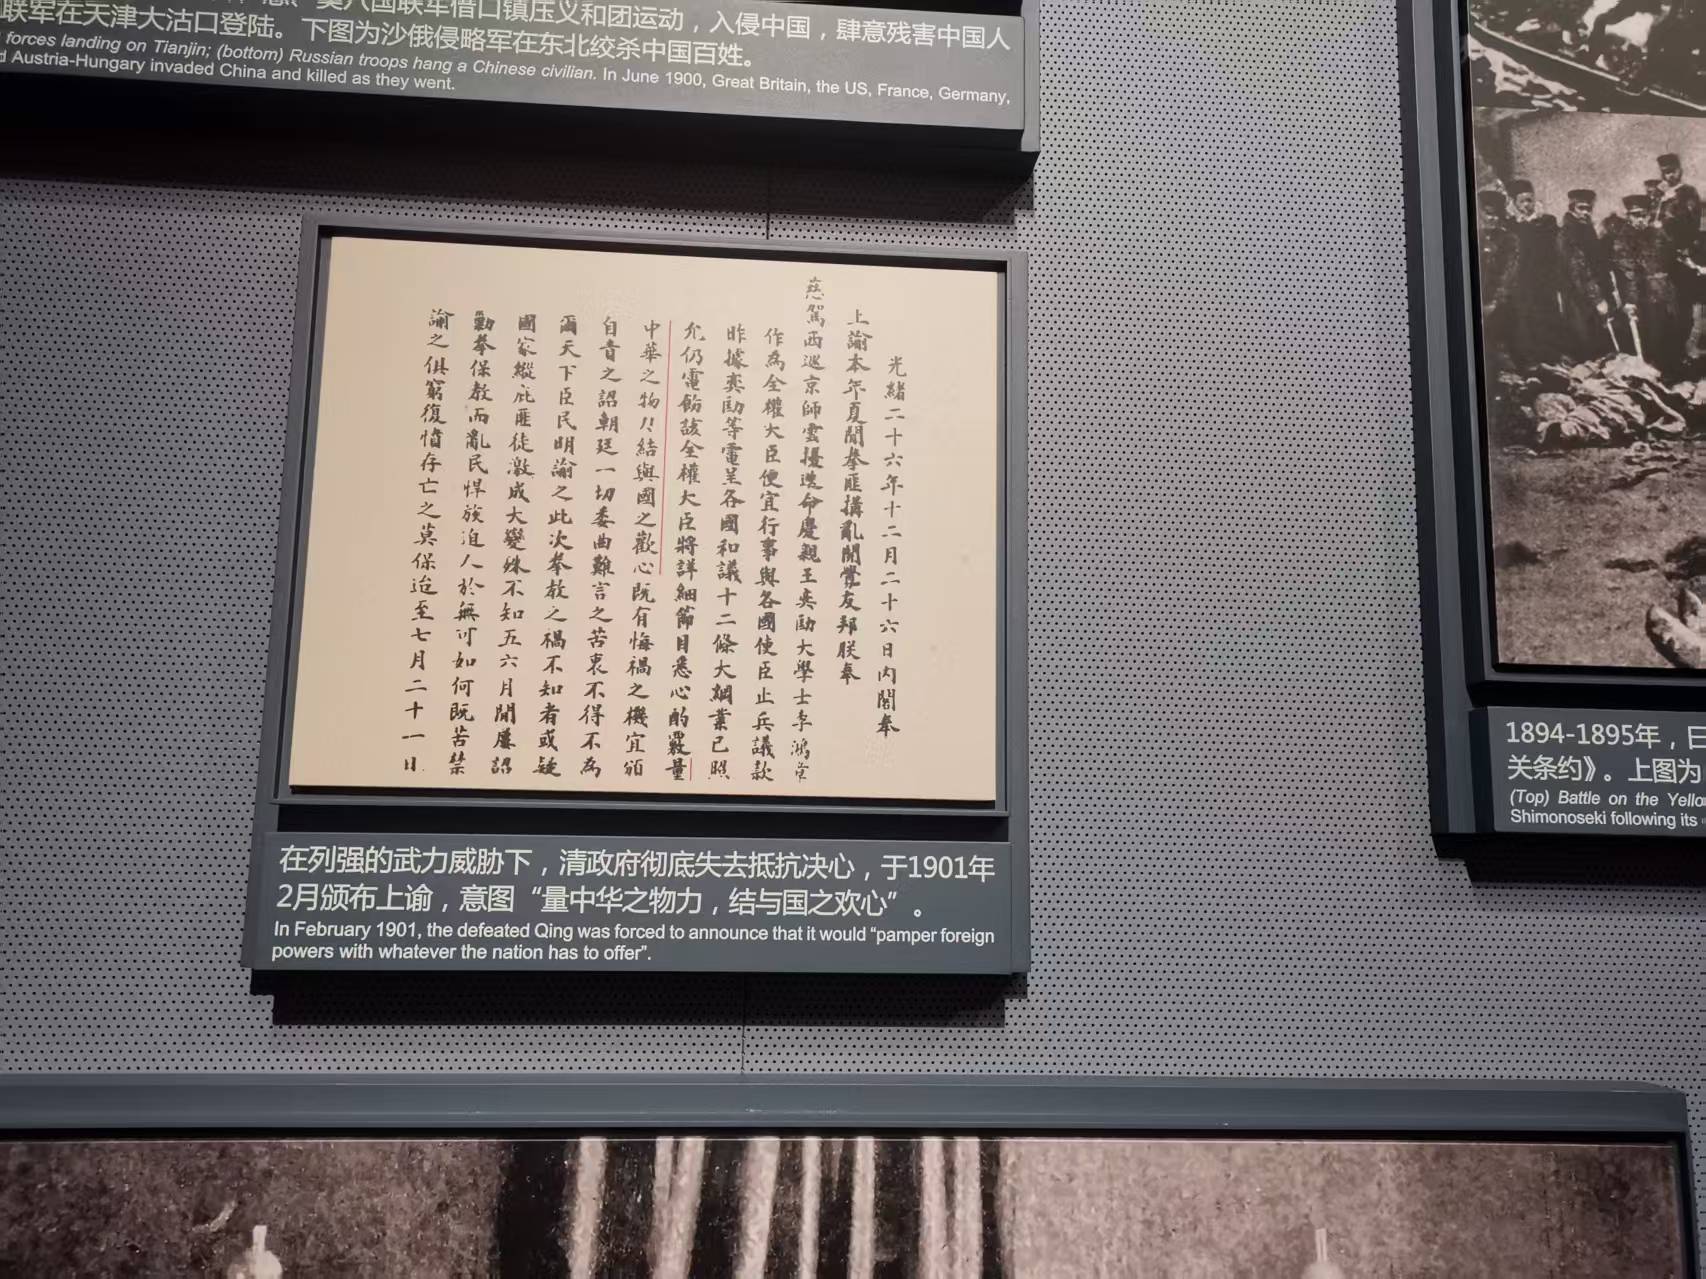 八国联军借口镇压义和团运动，入侵中国，肆意残害中国人
联军在天津大沽口登陆。下图为沙俄侵略军在东北绞杀中国百姓。
forces landing on Tianjin; (bottom) Russian troops hang a Chinese civilian. In June 1900, Great Britain, the US, France, Germany,
Austria-Hungary invaded China and killed as they went.
光緒二十六年十二月二十六日內閣奉
上諭本年夏間拳匪搆亂開釁友邦朕奉
慈駕西巡京師雲擾迭命慶親王奕劻大學士李鴻章
作為全權大臣便宜行事與各國使臣止兵議款
昨據奕劻等電呈各國和議十二條大綱業已照
允仍電飭該全權大臣將詳細節目悉心酌覈量
中華之物力結與國之歡心既有悔禍之機宜頒
自責之詔朝廷一切委曲難言之苦衷不得不為
爾天下臣民明諭之此次拳教之禍不知者或疑
國家縱庇匪徒激成大變殊不知五六月間屢詔
勦拳保教而亂民悍族迫人於無可如何既苦禁
諭之俱窮復憤存亡之莫保迨至七月二十一日
在列强的武力威胁下，清政府彻底失去抵抗决心，于1901年
2月颁布上谕，意图“量中华之物力，结与国之欢心”。
In February 1901, the defeated Qing was forced to announce that it would “pamper foreign
powers with whatever the nation has to offer”.
1894-1895年，日
关条约》。上图为
(Top) Battle on the Yello
Shimonoseki following its